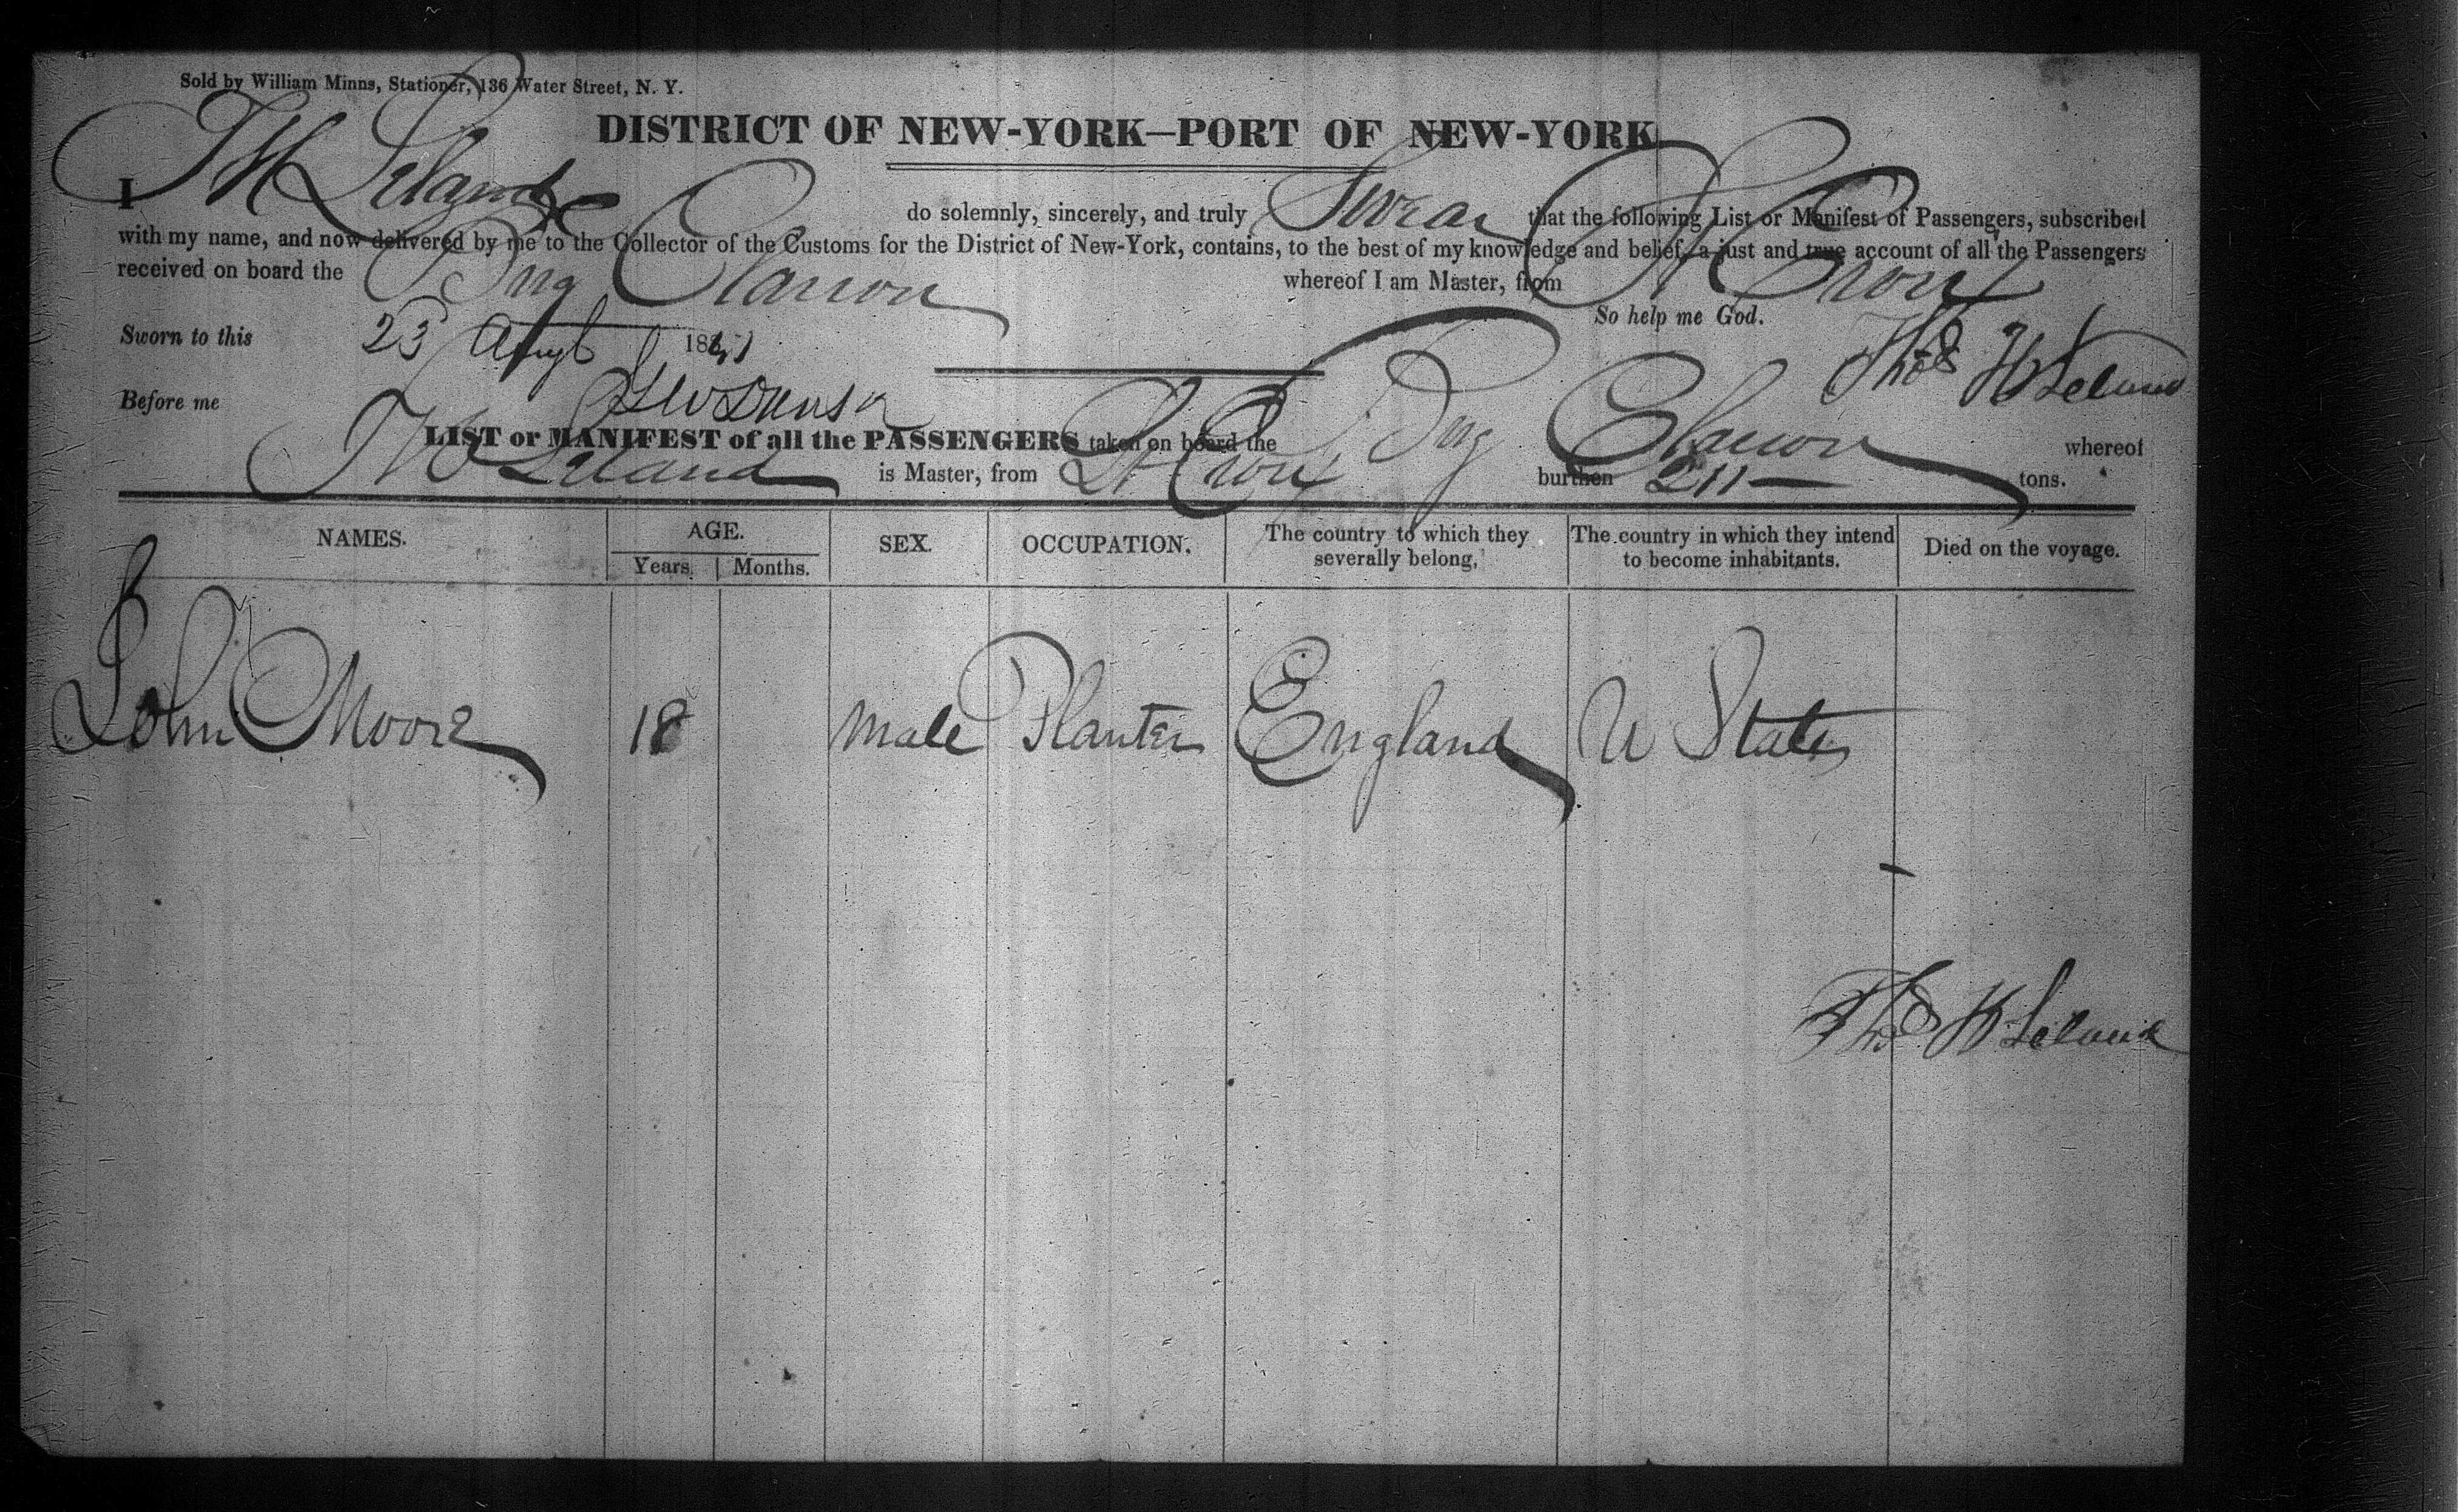 Sold by William Minns, Stationer, 136 Water Street, N. Y.
DISTRICT OF NEW-YORK—PORT OF NEW-YORK
I T H Leland do solemnly, sincerely, and truly Swear that the following List or Manifest of Passengers, subscribed
with my name, and now delivered by me to the Collector of the Customs for the District of New-York, contains, to the best of my knowledge and belief, a just and true account of all the Passengers
received on board the Brig Clarion whereof I am Master, from St Croix
So help me God.
Sworn to this 23 1841
Thos H Leland
Before me
LIST or MANIFEST of all the PASSENGERS taken on board the Brig Clarion whereof
T H Leland is Master, from St Croix burthen 211 tons.
NAMES. AGE. SEX. OCCUPATION. The country to which they severally belong, The country in which they intend to become inhabitants. Died on the voyage.
Years. Months.
John Moore 18 male Planter England U States
Thos H Leland